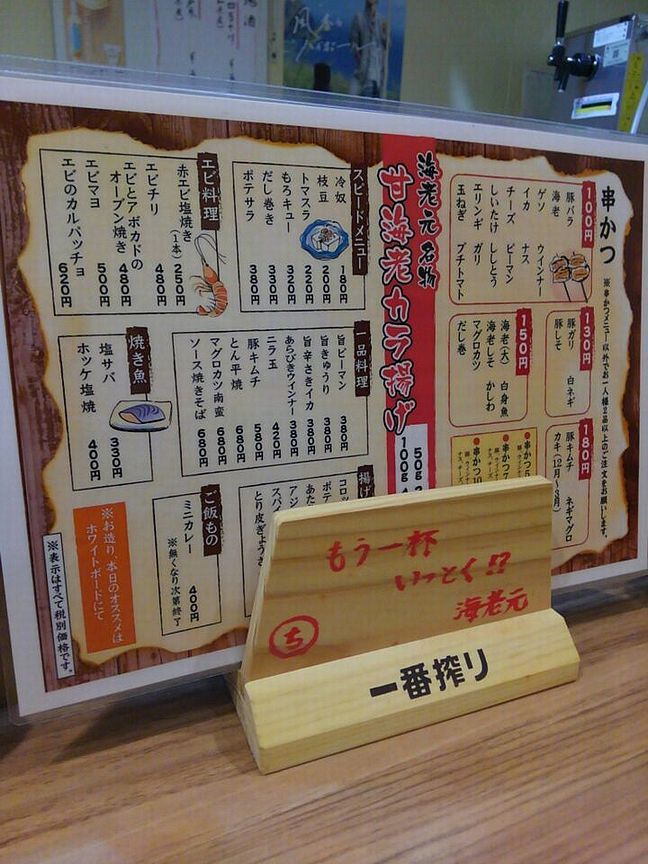 串かつ
※串かつメニュー以外でお一人様2品以上のご注文をお願いします。
100円
豚バラ
海老
ゲソ
イカ
チーズ
しいたけ
エリンギ
玉ねぎ
ウインナー
ナス
ピーマン
ししとう
ガリ
プチトマト
130円
豚ガリ
豚しそ
白ネギ
150円
海老(大)
海老しそ
マグロカツ
だし巻
白身魚
かしわ
180円
豚キムチ
カキ(12月~3月)
ネギマグロ
海老元 名物
甘海老カラ揚げ
50g
100g
スピードメニュー
冷奴 180円
枝豆 200円
トマスラ 220円
もろキュー 320円
だし巻き 330円
ポテサラ 380円
エビ料理
赤エビ塩焼き(1本) 250円
エビチリ 480円
エビとアボカドのオーブン焼き 480円
エビマヨ 500円
エビのカルパッチョ 620円
一品料理
旨ピーマン 380円
旨きゅうり 380円
旨辛さきイカ 380円
あらびきウインナー 380円
ニラ玉 420円
豚キムチ 580円
とん平焼 680円
マグロカツ南蛮 680円
ソース焼きそば 680円
焼き魚
塩サバ 330円
ホッケ塩焼 400円
揚げ
とり皮ぎょうざ
ご飯もの
ミニカレー 400円
※無くなり次第終了
※お造り、本日のオススメは
ホワイトボードにて
※表示はすべて税別価格です。
もう一杯
いっとく!?
海老元
ち
一番搾り